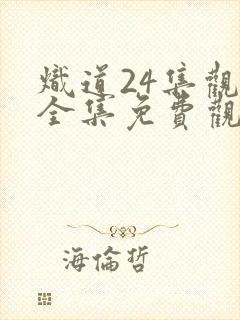 熾道24集觀
全集免費觀
海倫哲